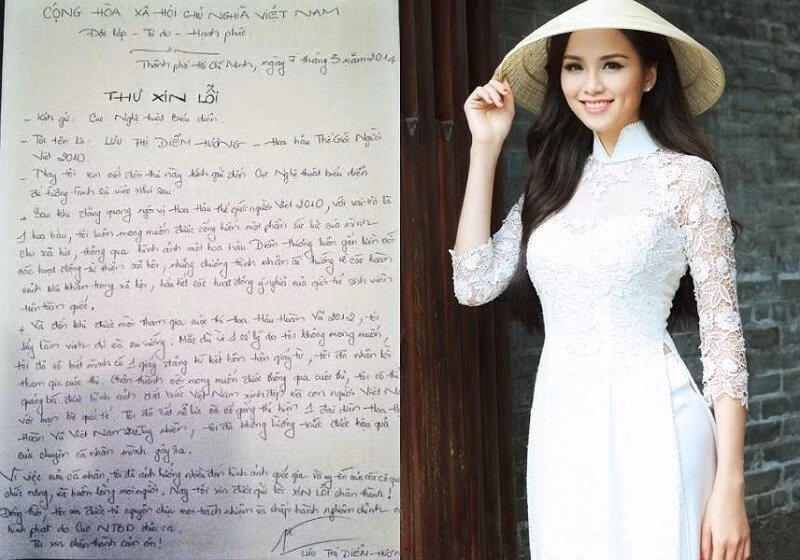 CỘNG HÒA XÃ HỘI CHỦ NGHĨA VIỆT NAM
Độc lập - Tự do - Hạnh phúc
Thành phố Hồ Chí Minh, ngày 7 tháng 3 năm 2014
THƯ XIN LỖI
- Kính gửi: Cục Nghệ thuật Biểu diễn.
- Tôi tên là: LƯU THỊ DIỄM HƯƠNG - Hoa hậu Thế Giới Người
Việt 2010.
- Nay tôi xin viết đơn thư này kính gửi đến Cục Nghệ thuật biểu diễn
để tường trình sự việc như sau:
+ Sau khi đăng quang ngôi vị Hoa Hậu Thế giới người Việt 2010, với vai trò là
1 hoa hậu, tôi luôn mong muốn được cống hiến một phần sức bé của mình
cho xã hội, thông qua hình ảnh một hoa hậu Diễm Hương luôn gắn liền với
các hoạt động từ thiện xã hội, những chương trình nhân ái hướng về các hoàn
cảnh khó khăn trong xã hội, hầu hết các hoạt động ý nghĩa của giới trẻ sinh viên
trên toàn quốc.
+ Và đến khi được mời tham gia cuộc thi Hoa Hậu Hoàn Vũ 2012, tôi
lấy làm vinh dự và vui mừng. Mặc dù vì 1 số lý do tôi không mong muốn,
tôi đã biết mình có 1 giấy đăng ký kết hôn trên giấy tờ, tôi đã nhận lời
tham gia cuộc thi. Chân thành với mong muốn được thông qua cuộc thi, tôi có thể
quảng bá được hình ảnh đất nước Việt Nam xinh đẹp và con người Việt Nam
với bạn bè quốc tế. Tôi đã rất nỗ lực và cố gắng thể hiện 1 đại diện Hoa Hậu
Hoàn Vũ Việt Nam, tuy nhiên, tôi đã không lường trước được hậu quả
của chuyện cá nhân mình gây ra.
Vì việc của cá nhân, tôi đã ảnh hưởng nhiều đến hình ảnh quốc gia và uy tín của các cơ quan
chức năng, và buồn lòng mọi người. Nay tôi xin được gửi lời XIN LỖI chân thành!
Đồng thời, tôi xin được tự nguyện chịu mọi trách nhiệm và chấp hành nghiêm chỉnh
hình phạt do Cục NTBD đưa ra.
Tôi xin chân thành cảm ơn!
LƯU THỊ DIỄM HƯƠNG